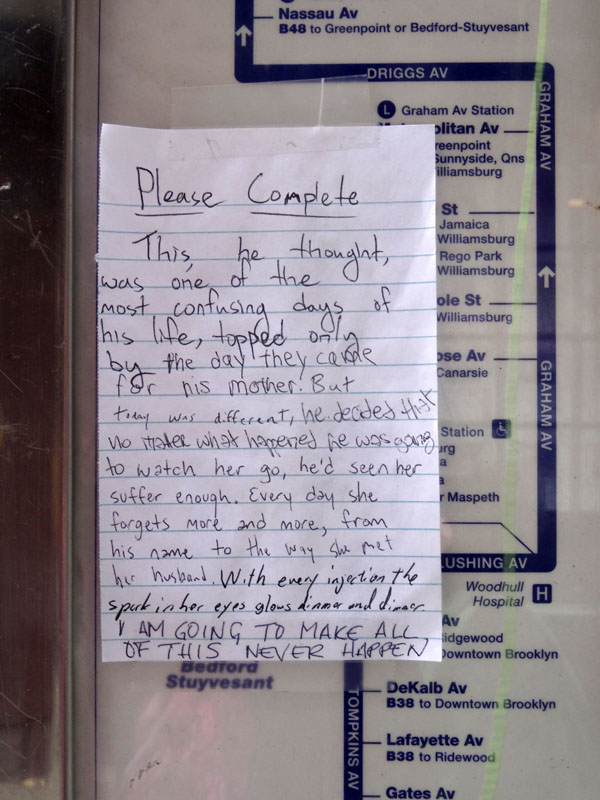 Nassau Av
B48 to Greenpoint or Bedford-Stuyvesant
DRIGGS AV
GRAHAM AV
L Graham Av Station
olitan Av
reenpoint
Sunnyside, Qns
illiamsburg
St
Jamaica
Williamsburg
Rego Park
Williamsburg
ole St
Williamsburg
ose Av
Canarsie
GRAHAM AV
Station
urg
a
a
r Maspeth
LUSHING AV
Woodhull
Hospital H
Av
idgewood
Downtown Brooklyn
Bedford
Stuyvesant
TOMPKINS AV
DeKalb Av
B38 to Downtown Brooklyn
Lafayette Av
B38 to Ridewood
Gates Av
Please Complete
This, he thought,
was one of the
most confusing days of
his life, topped only
by the day they came
for his mother. But
today was different, he decided that
no matter what happened he was going
to watch her go, he'd seen her
suffer enough. Every day she
forgets more and more, from
his name to the way she met
her husband. With every injection the
spark in her eyes glows dimmer and dimmer
I AM GOING TO MAKE ALL
OF THIS NEVER HAPPEN